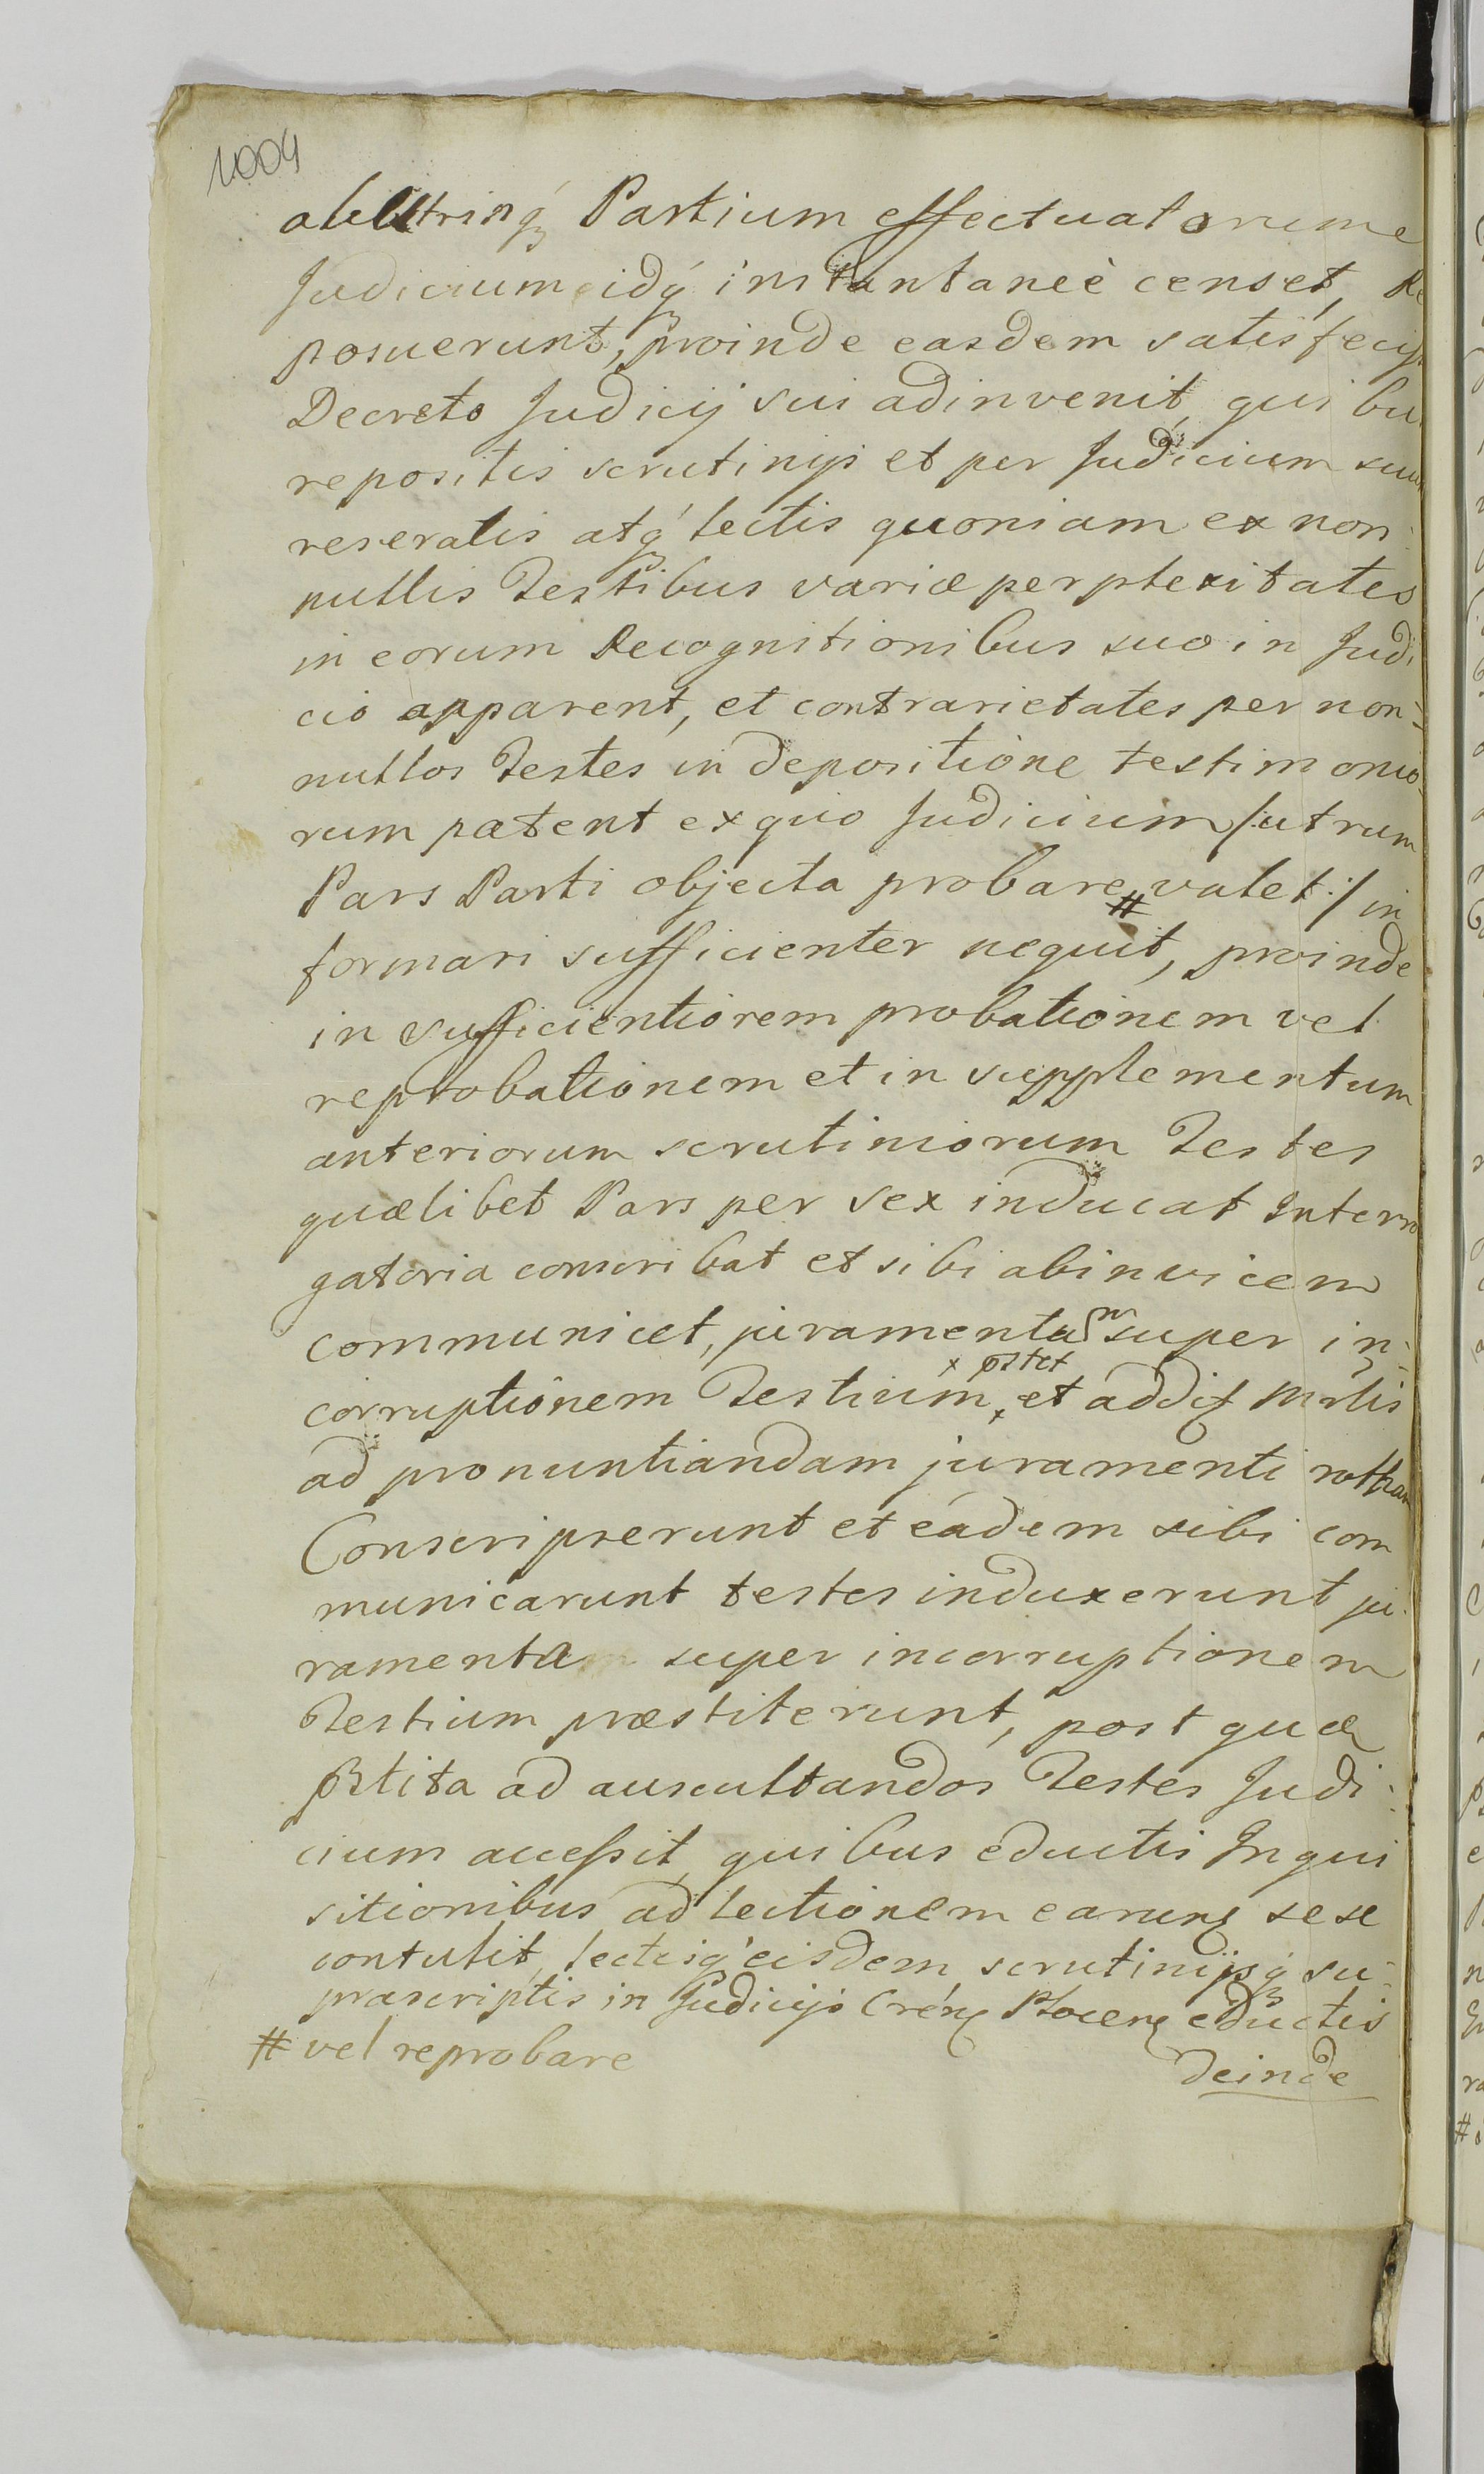 1004
ab utrinq́ Partium effectuatorum e
Judicium idq́ instantaneè censet, Re
posuerunt, proinde easdem satisfecisse
Decreto Judicij sui adinvenit, quibus
repositis scrutinijs et per Judicium suum
reseratis atq́ lectis quoniam ex non
nullis Testibus variæ perplexitates
in eorum Recognitionibus suo in Judi
cio apparent, et contrarietates per non=
nullos Testes in depositione testimonio
rum patent ex quo Judicium /: utrum
Pars Parti objecta probare # valet :/ in
formari sufficienter nequit, proinde
in sufficientiorem probationem vel
reprobationem et in supplementum
anteriorum scrutiniorum Testes
quælibet Pars per sex inducat Interro
gatoria conscribat et sibi abinvicem
communicet, juramentum super in=
x pstet
corruptionem Testium, x et addit
ad pronuntiandam juramenti rotham
Conscripserunt et eadem sibi com
municarunt testes induxerunt ju
ramenta super incorruptionem
Testium præstiterunt, post quæ
pstita ad auscultandos Testes Judi=
cium accessit, quibus eductis Inqui
sitionibus ad lectionem earum sese
contulit, lectisq́ eisdem scrutinijsq́ su=
præscriptis in Judicijs eductis
# vel reprobare
deinde